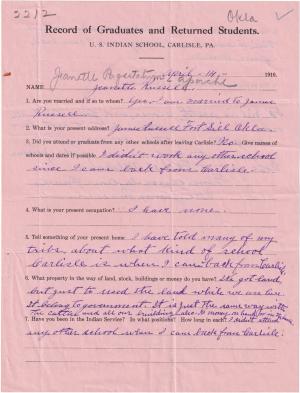 2212
Okla
Record of Graduates and Returned Students.
U. S. INDIAN SCHOOL, CARLISLE, PA.
Jeanette Apache
April 14 - 1910.
NAME Jeanette Russell
1. Are you married and if so to whom? Yes. I am married to James
Russell.
2. What is your present address? James Russell Fort Sill Okla.
3. Did you attend or graduate from any other schools after leaving Carlisle? No. Give names of
schools and dates if possible. I didn't work any other school
since I came back from Carlisle
4. What is your present occupation? I have none.
5. Tell something of your present home. I have told many of my
tribe about what kind of school
Carlisle is when I came back from Carlisle,
6. What property in the way of land, stock, buildings or money do you have? We got land
but just to used the land while we are live
it belong to government. It is just the same way with
the cattle and all our buildings also. No money on bank
7. Have you been in the Indian Service? In what positions? How long in each? I didn't attend
any other school when I came back from Carlisle.